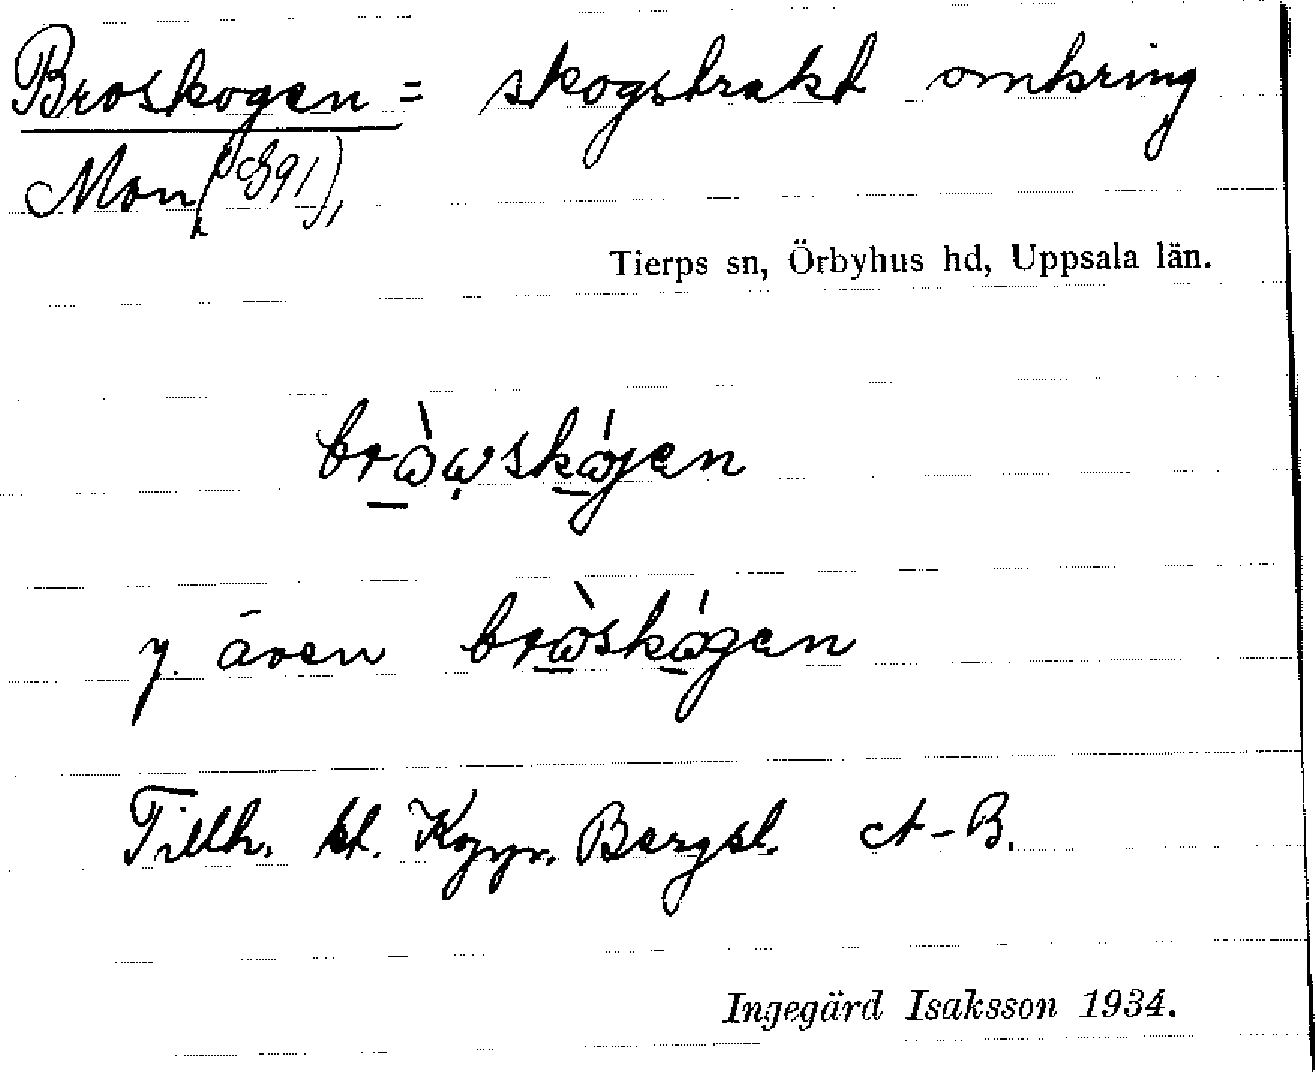 Broskogen = skogstrakt omkring
Mon
Tierps sn, Örbyhus hd, Uppsala län.
även
Tillh. st. Koppr. Bergsl. A-B.
Ingegärd Isaksson 1934.